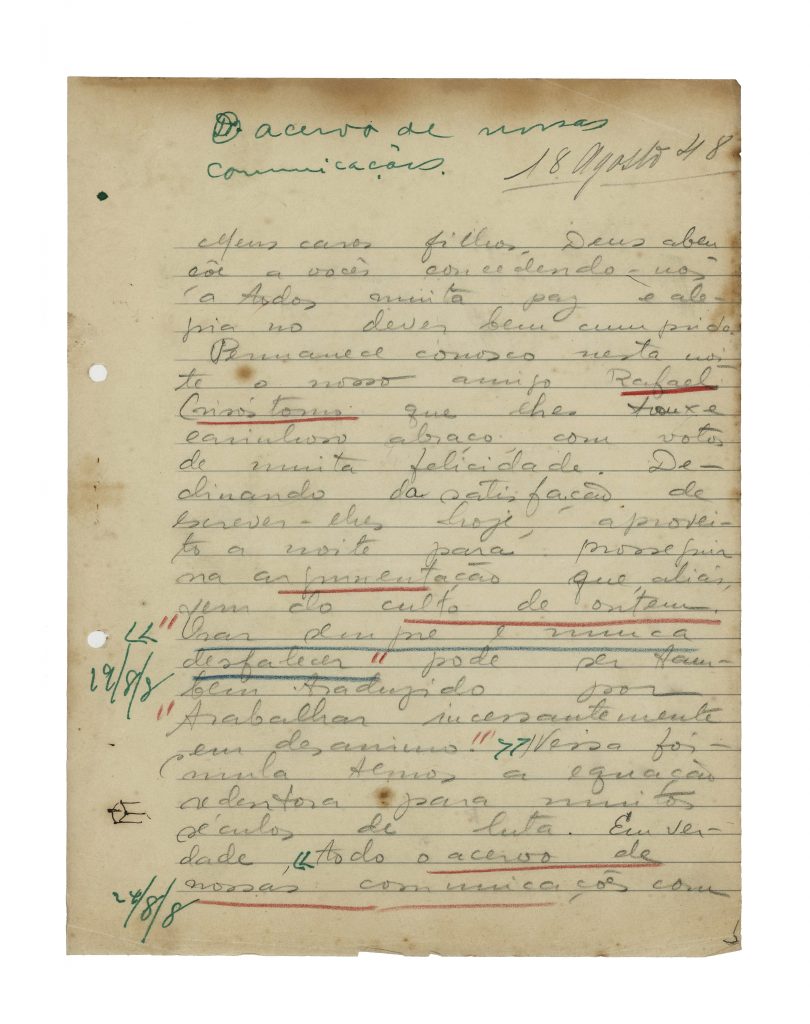 O acervo de nossas
comunicações.
18 Agosto 48
Meus caros filhos, Deus aben
çõe a vocês concedendo-nos
a todos muita paz e ale-
gria no dever bem cumprido.
Permanece conosco nesta noi
te o nosso amigo Rafael
Crisóstomo que lhes trouxe
carinhoso abraço com votos
de muita felicidade. De-
clinando da satisfação de
escrever-lhes hoje, aprovei-
to a noite para prosseguir
na argumentação que, aliás,
vem do culto de ontem.
"Orar sempre e nunca
desfalecer" pode ser tam-
bém traduzido por
"trabalhar incessantemente
sem desanimo." Nessa fór-
mula temos a equação
redentora para muitos
séculos de luta. Em ver-
dade, «todo o acervo de
nossas comunicações com